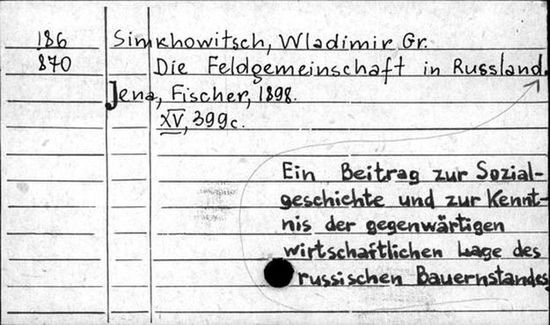 186 Simkhowitsch, Wladimir Gr.
870 Die Feldgemeinschaft in Russland.
Jena, Fischer, 1898.
XV, 399c.
Ein Beitrag zur Sozial-
geschichte und zur Kennt-
nis der gegenwärtigen
wirtschaftlichen Lage des
russischen Bauernstandes